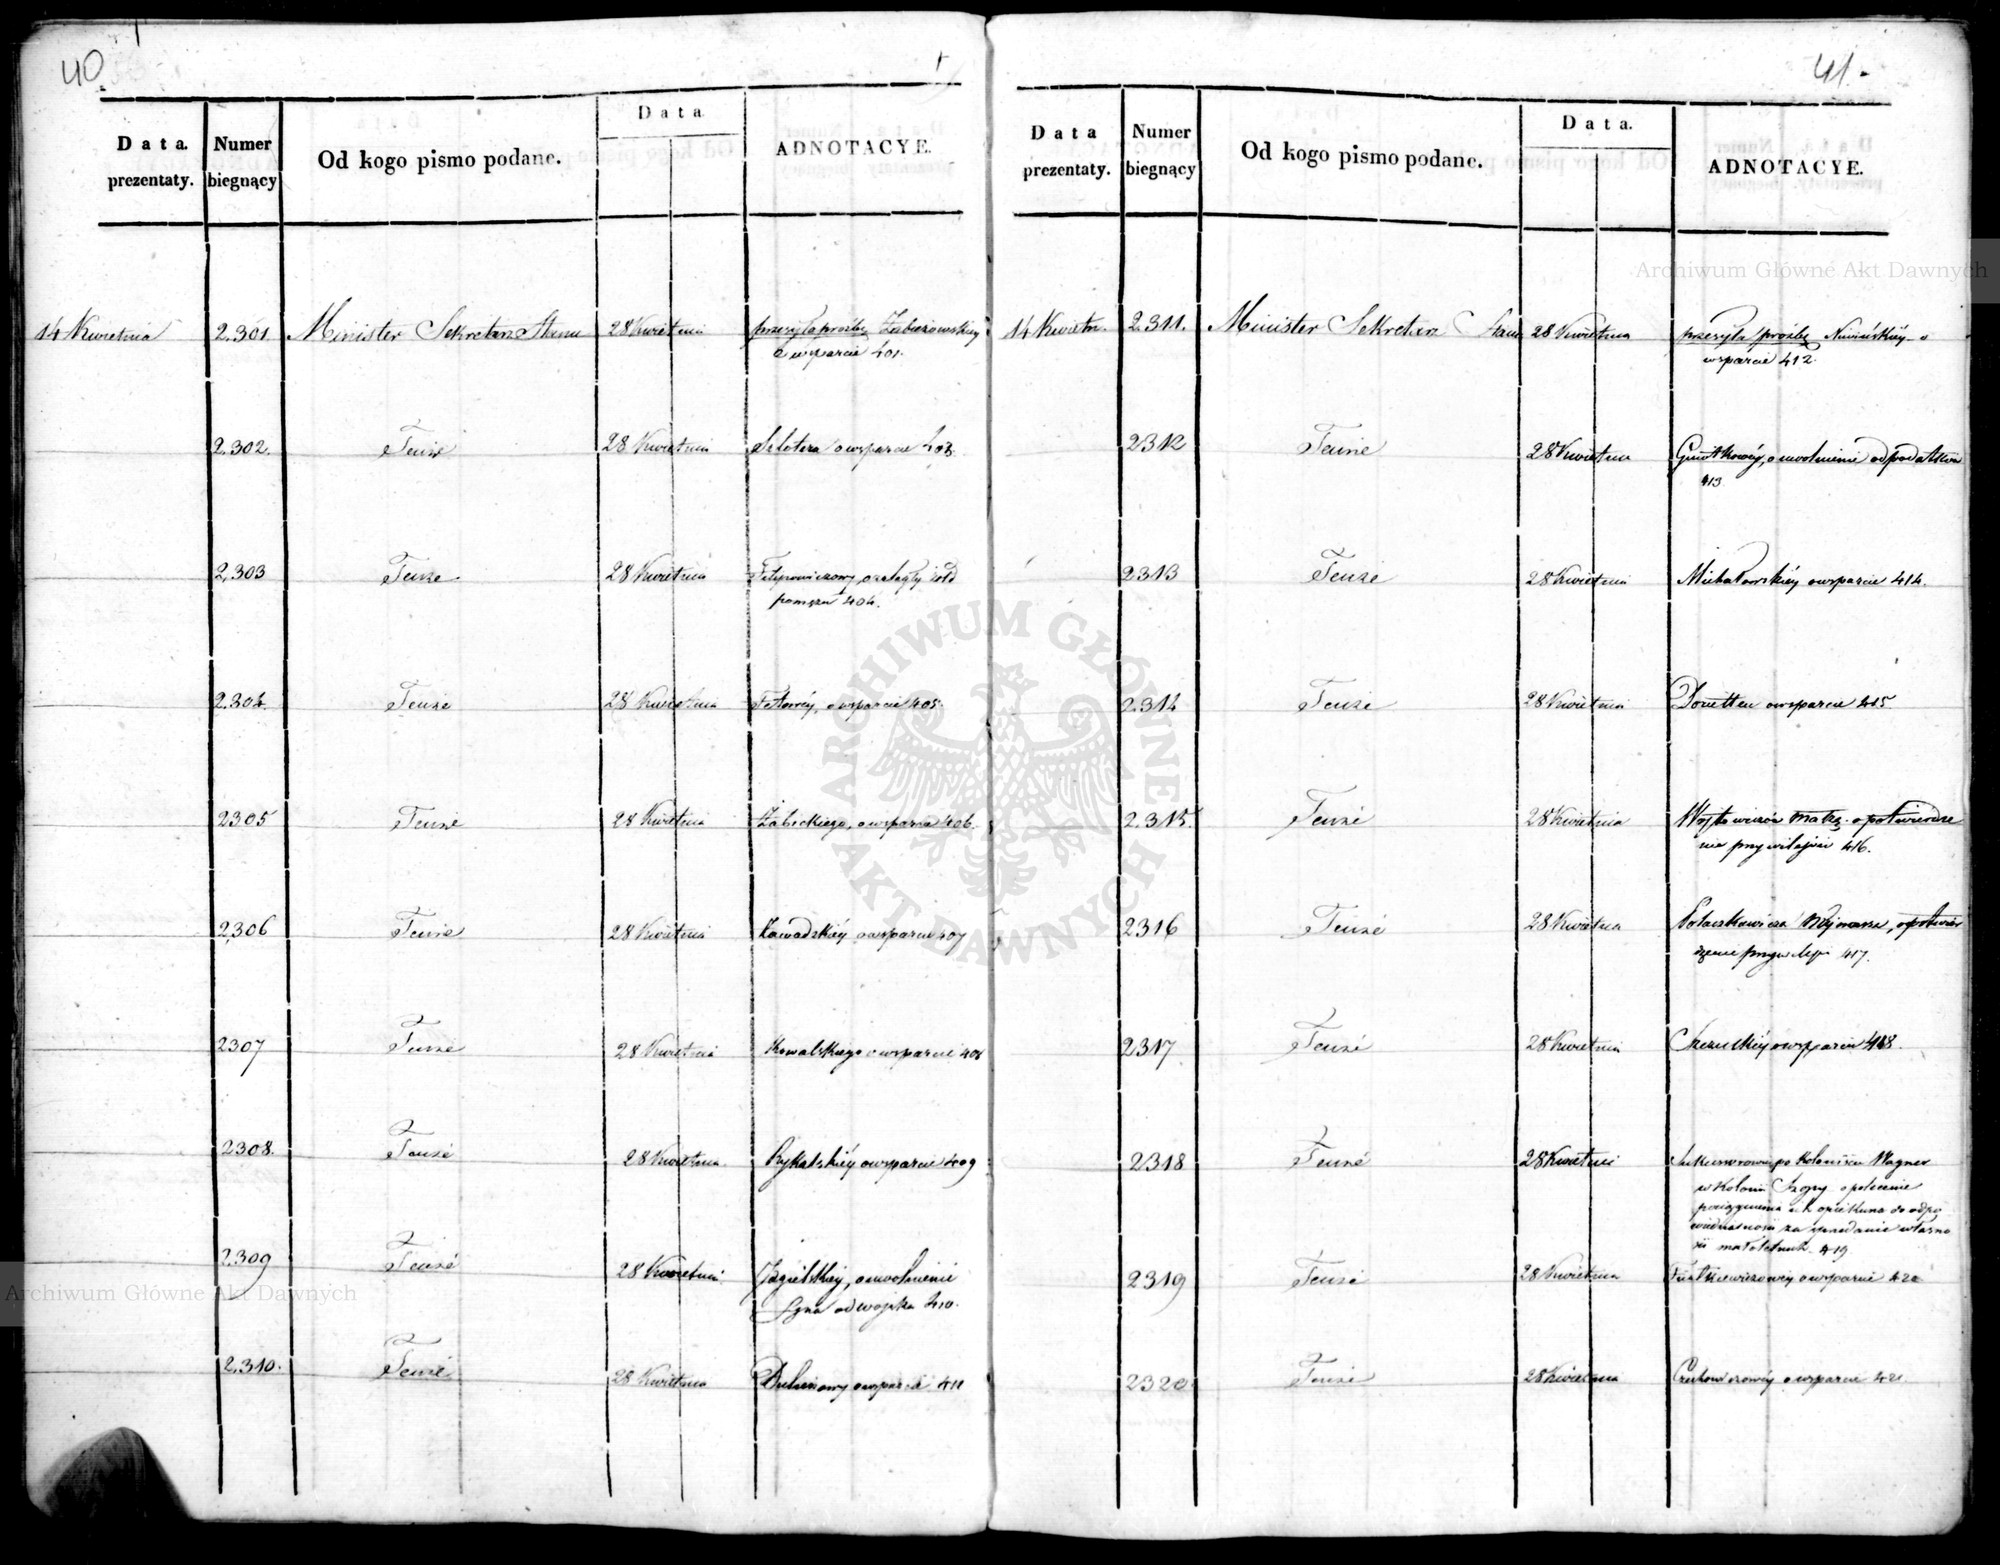 40
D a t a. prezentaty.
Numer biegnący
Od kogo pismo podane.
D a t a
ADNOTACYE.
14 Kwietnia 2.301. Minister Sekretarz Stanu 28 Kwietnia przesyła prozbę
o wsparcie 401.
2.302. Tenże 28 Kwietnia o wsparcie 403.
2,303 Tenże 28 Kwietnia
404.
2.304. Tenże 28 Kwietnia o wsparcie 405.
2305 Tenże 28 Kwietnia Żabickiego, o wsparcie 406.
2,306 Tenże 28 Kwietnia Zawadzkiéy o wsparcie 407
2307 Tenże 28 Kwietnia Kowalskiego o wsparcie 408
2308. Tenże 28 Kwietnia Rykalskiéy o wsparcie 409
2.309 Tenże 28 Kwietnia o uwolnienie
syna od woyska 410.
2.310. Tenże 28 Kwietnia o wsparcie 411
41.
D a t a prezentaty.
Numer biegnący
Od kogo pismo podane.
D a t a.
ADNOTACYE.
14 Kwietn. 2.311. Minister Sekretarz Stanu 28 Kwietnia przesyła prozbę o
wsparcie 412.
2312 Tenże 28 Kwietnia o uwolnienie od podatków
413
2313 Tenże 28 Kwietnia Michałowskiéy o wsparcie 414.
2314 Tenże 28 Kwietnia o wsparcie 415
2.315. Tenże 28 Kwietnia o potwierdze
nie przywilejów 416.
2316 Tenże 28 Kwietnia o potwier
dzenie przywileju 417.
2317 Tenże 28 Kwietnia o wsparcie 418.
2318 Tenże 28 Kwietnia Sukcessorowie po Koloniście Wagner
w Kolonii o polecenie
pociągnienia ich opiekuna do odpo
wiedzialności za sprzedanie własno
ści małoletnich 419
2319 Tenże 28 Kwietnia o wsparcie 420
2320 Tenże 28 Kwietnia o wsparcie 421.
Archiwum Główne Akt Dawnych
ARCHIWUM GŁÓWNE AKT DAWNYCH
Archiwum Główne Akt Dawnych